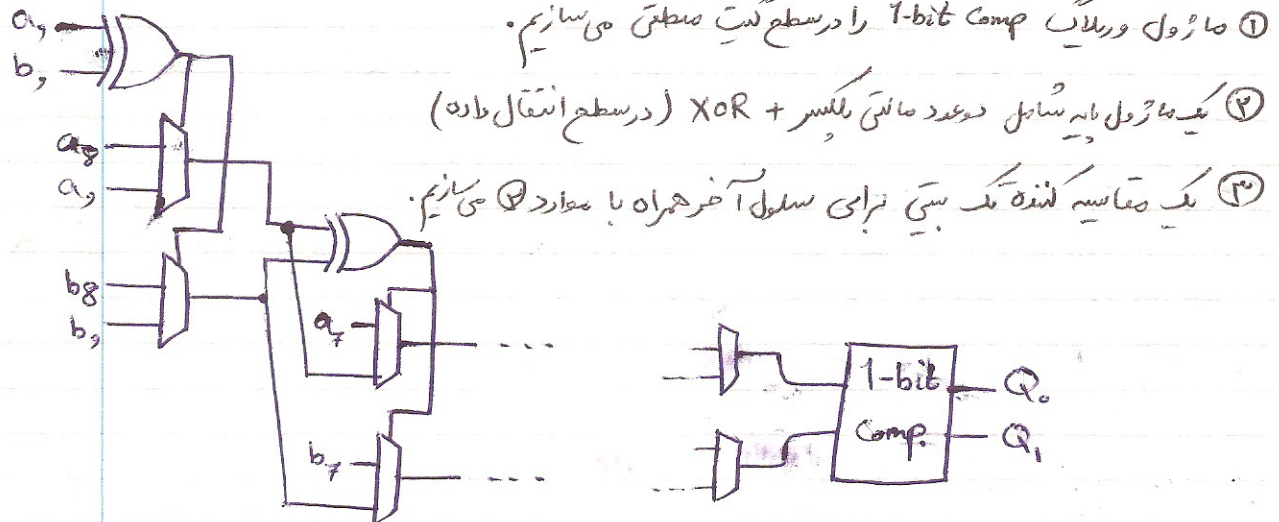 ① ماژول وریلاگ 1-bit Comp را در سطح گیت منطقی می‌سازیم.
② یک ماژول پایه شامل دو عدد مالتی پلکسر + XOR (در سطح انتقال داده)
③ یک مقایسه کننده تک بیتی برای سلول آخر همراه با موارد ② می‌سازیم.
a9
b9
a8
a9
b8
b9
a7
b7
1-bit
Comp.
Q0
Q1